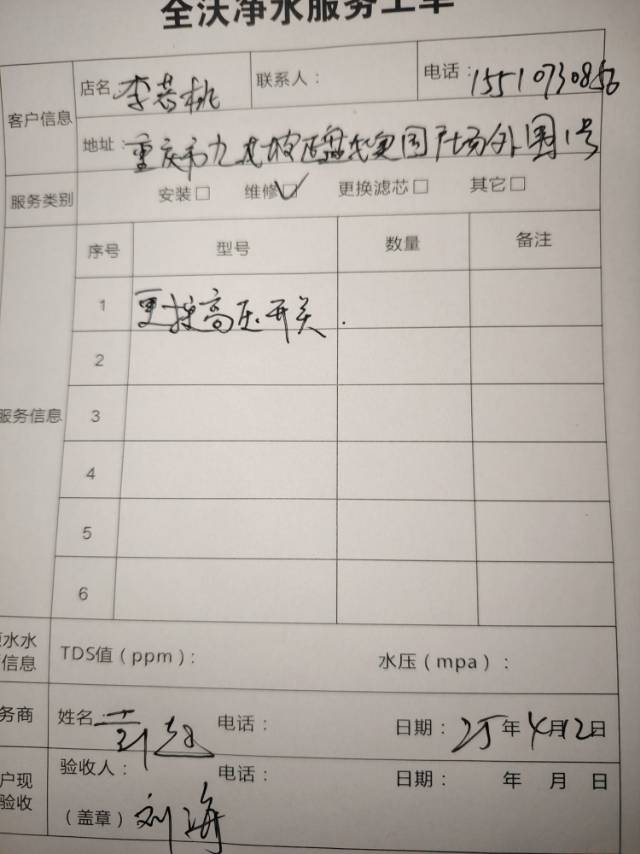 全沃净水服务工单
客户信息
店名 李若桃
联系人：
电话：15510730856
地址：重庆市九龙坡区盘龙 外围1号
服务类别 安装□ 维修☑ 更换滤芯□ 其它□
服务信息
序号 型号 数量 备注
1 更换高压开关.
2
3
4
5
6
水水
信息
TDS值（ppm）： 水压（mpa）：
务商 姓名 电话： 日期：25年4月12日
户现
验收
验收人： 电话： 日期： 年 月 日
（盖章）刘海